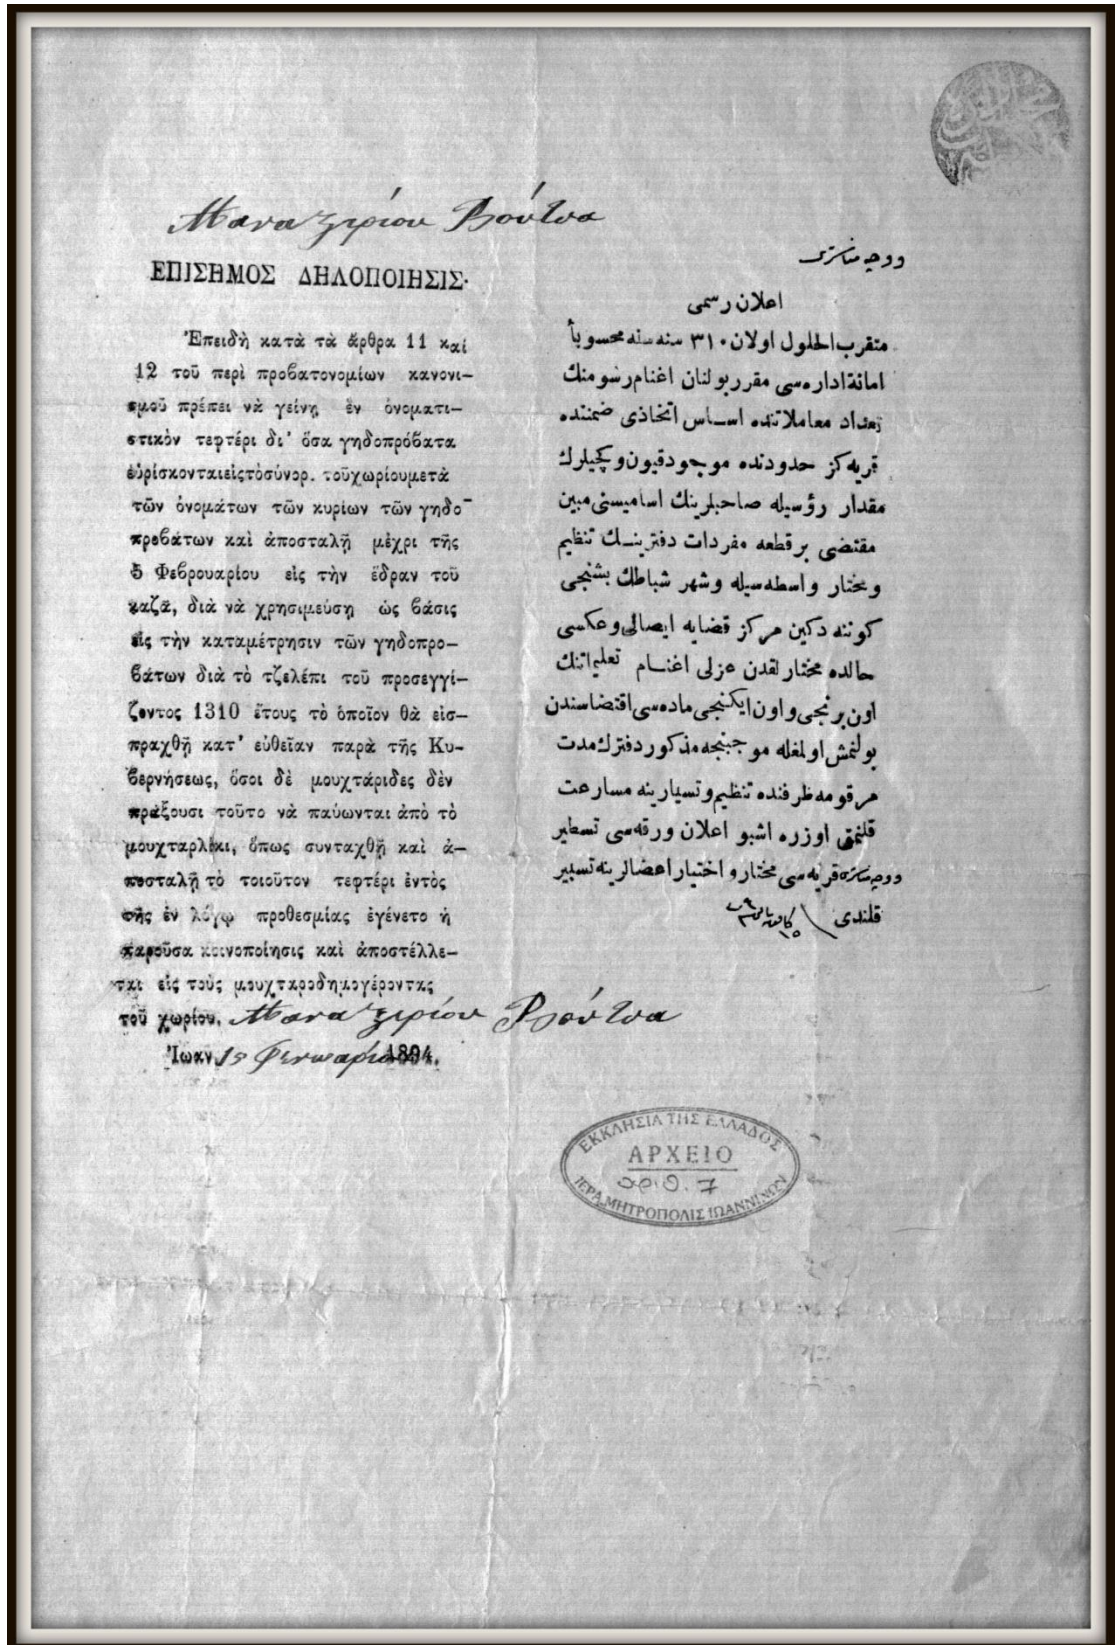 Μοναστηρίου Βούτσα
ΕΠΙΣΗΜΟΣ ΔΗΛΟΠΟΙΗΣΙΣ·
Ἐπειδὴ κατὰ τὰ ἄρθρα 11 καί
12 τοῦ περὶ προβατονομίων κανονι-
σμοῦ πρέπει νὰ γείνῃ ἐν ὀνοματι-
στικὸν τεφτέρι δι' ὅσα γηδοπρόβατα
εὑρίσκονταιεἰςτὸσύνορ. τοῦχωρίουμετὰ
τῶν ὀνομάτων τῶν κυρίων τῶν γηδο-
προβάτων καὶ ἀποσταλῇ μέχρι τῆς
5 Φεβρουαρίου εἰς τὴν ἕδραν τοῦ
καζᾶ, διὰ νὰ χρησιμεύσῃ ὡς βάσις
εἰς τὴν καταμέτρησιν τῶν γηδοπρο-
βάτων διὰ τὸ τζελέπι τοῦ προσεγγί-
ζοντος 1310 ἔτους τὸ ὁποῖον θὰ εἰσ-
πραχθῇ κατ' εὐθεῖαν παρὰ τῆς Κυ-
βερνήσεως, ὅσοι δὲ μουχτάριδες δὲν
πράξουσι τοῦτο νὰ παύωνται ἀπὸ τὸ
μουχταρλίκι, ὅπως συνταχθῇ καὶ ἀ-
ποσταλῇ τὸ τοιοῦτον τεφτέρι ἐντὸς
τῆς ἐν λόγῳ προθεσμίας ἐγένετο ἡ
παροῦσα κοινοποίησις καὶ ἀποστέλλε-
ται εἰς τοὺς μουχταροδημογέροντας
τοῦ χωρίου, Μοναστηρίου Βούτσα
Ἰωαν. 15 Γεννουαρίου 1894.
اعلان رسمی
متقرب الحلول اولان ٣١٠ سنه سنه محسوباً
امانة اداره سی مقرر بولنان اغنام رسومنك
تعداد معاملاتنده اساس اتخاذی ضمننده
قریه كز حدودنده موجود قیون و كچیلرك
مقدار رؤسیله صاحبلرینك اسامیسنی مبین
مقتضی بر قطعه مفردات دفترینك تنظیم
و مختار واسطه سیله و شهر شباطك بشنجی
كوننه دكین مركز قضایه ایصالی و عكسی
حالده مختارلقدن عزلی اغنام تعلیماتنك
اون برنجی و اون ایكنجی ماده سی اقتضاسندن
بولنمش اولمغله موجبنجه مذكور دفترك مدت
مرقومه ظرفنده تنظیم و تسیارینه مسارعت
قلنمق اوزره اشبو اعلان ورقه سی تسطیر
قریه سی مختار و اختیار اعضالرینه تسییر
قلندی
ΕΚΚΛΗΣΙΑ ΤΗΣ ΕΛΛΑΔΟΣ
ΑΡΧΕΙΟ
αριθ. 7
ΙΕΡΑ ΜΗΤΡΟΠΟΛΙΣ ΙΩΑΝΝΙΝΩΝ